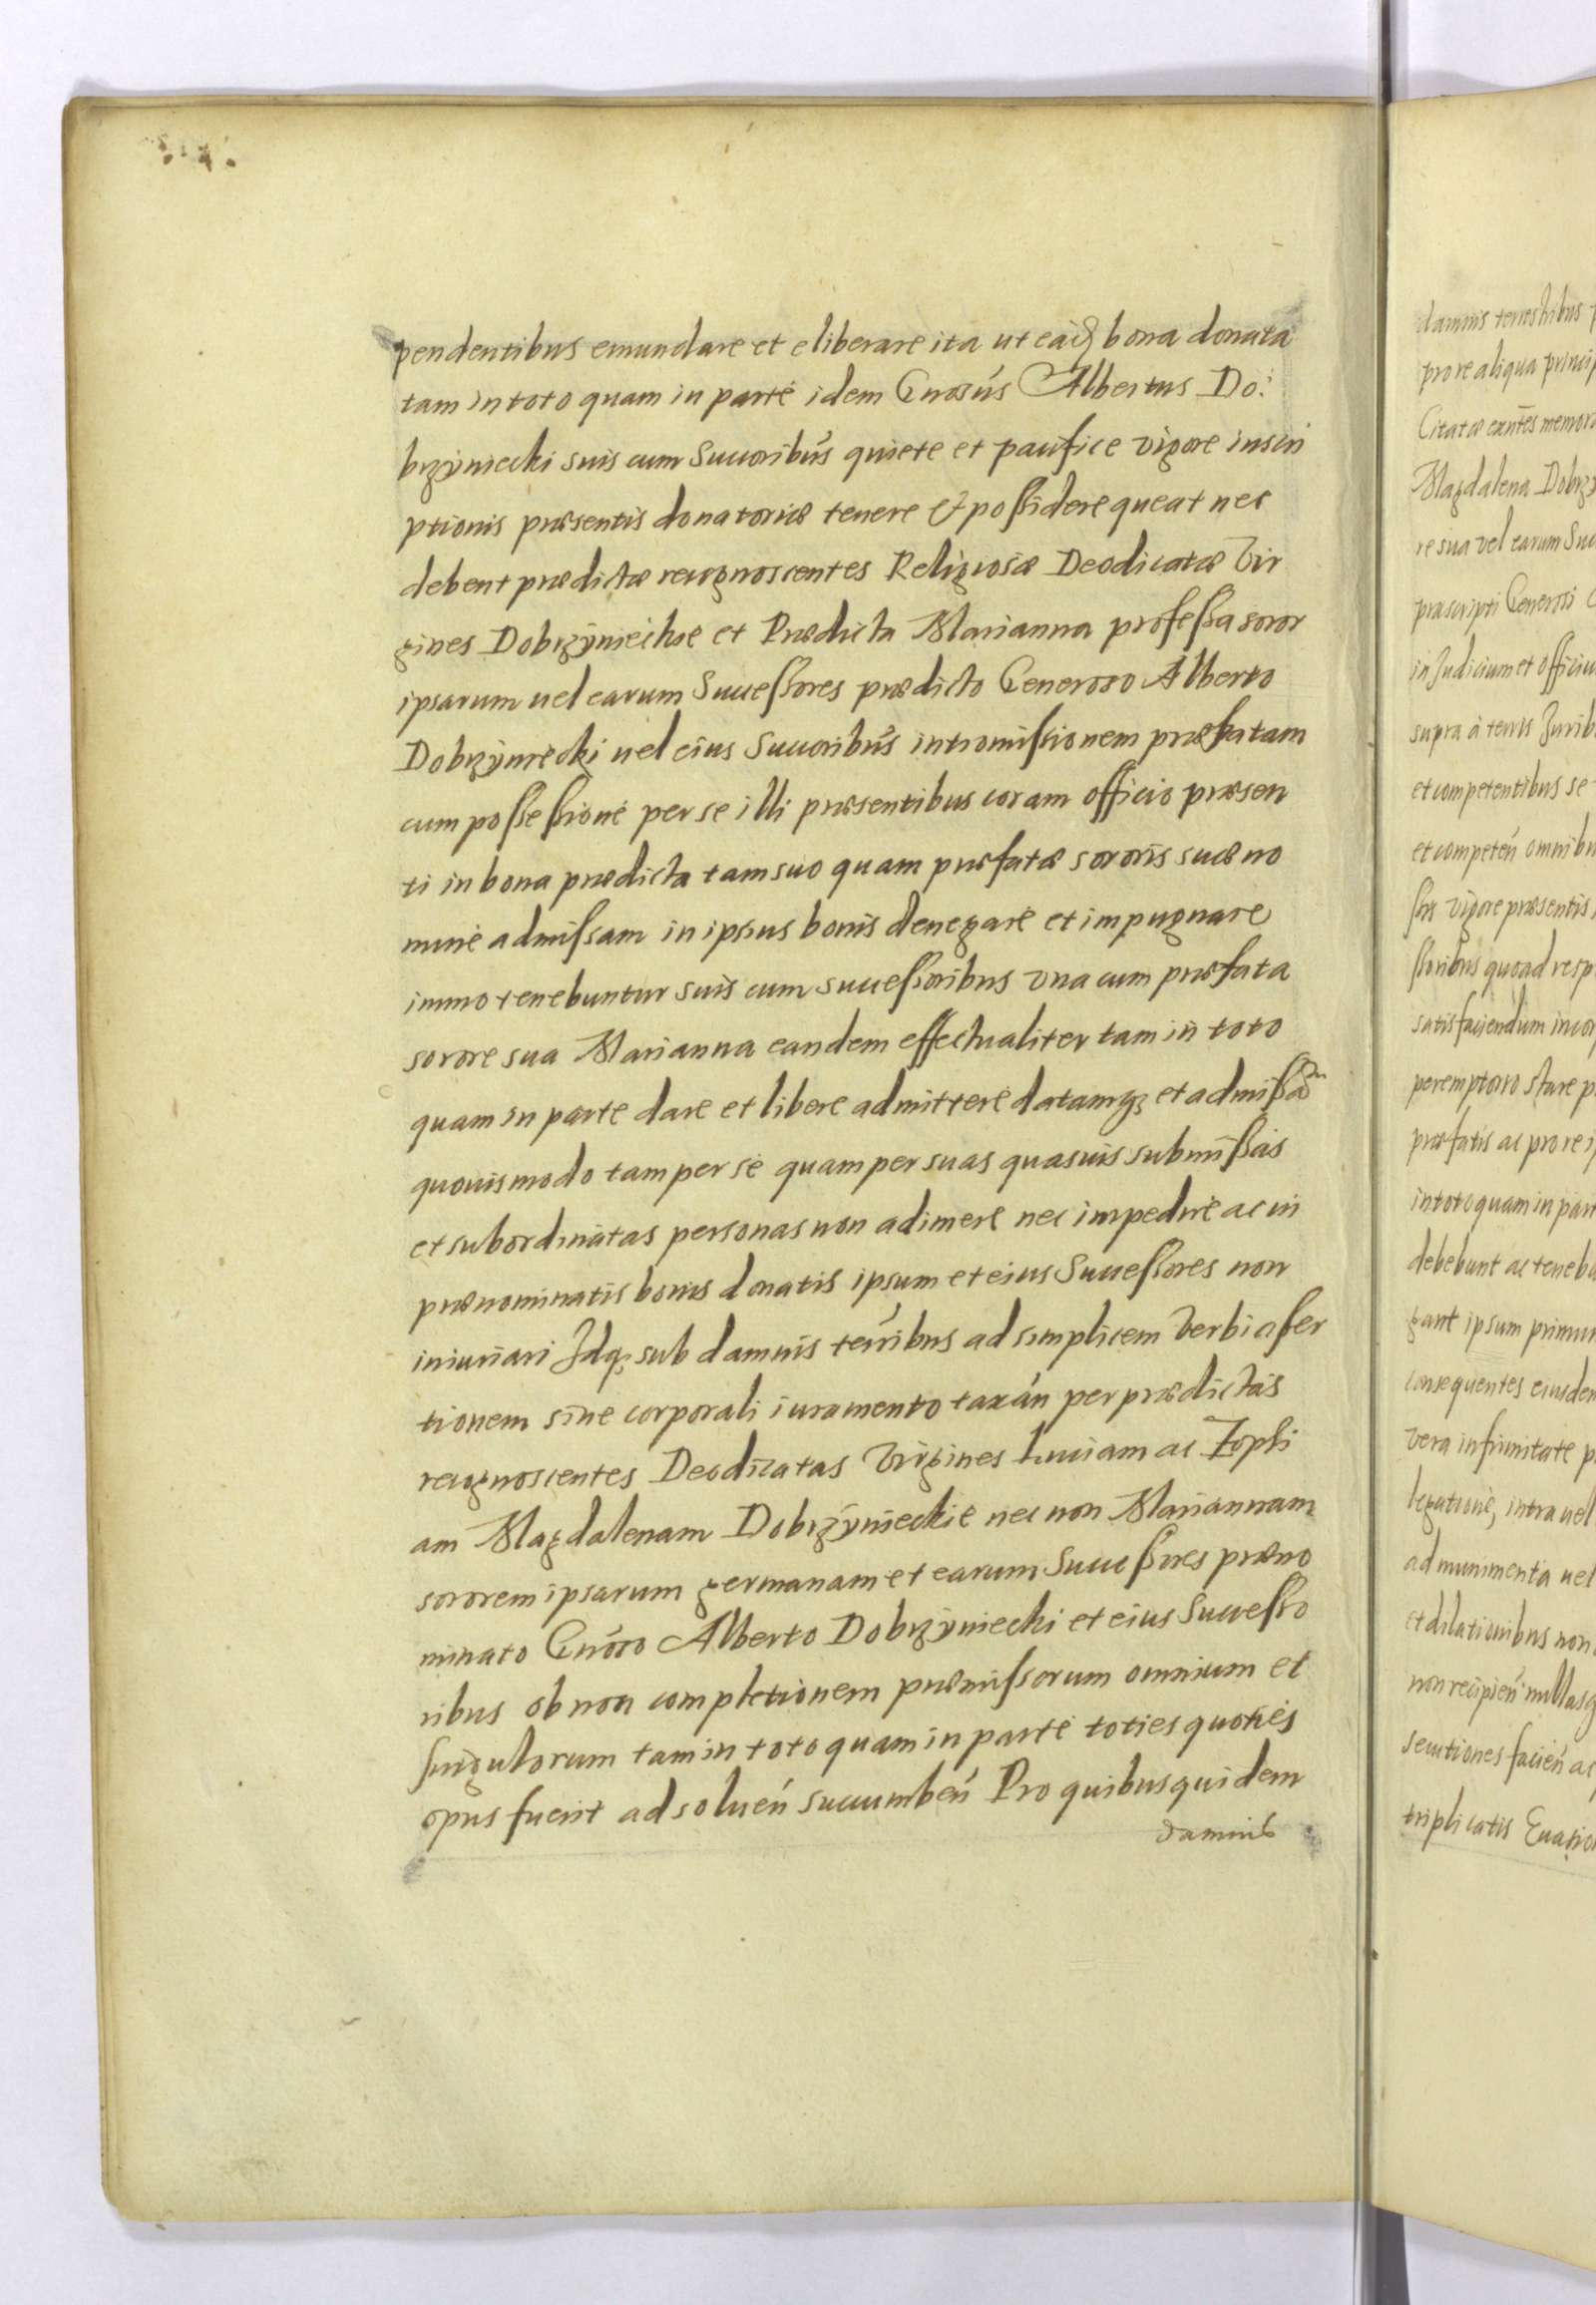 pendentibus emundare et eliberare ita ut eadḡ bona donata
tam in toto quam in parte idem Gnosús Albertus Do:
brzÿniecki suis cum Succoribús quiete et pacifice vigore inscri
ptionis præsentis donatoriæ tenere et possidere queat nec
debent prædictæ recognoscentes Religiosæ Deodicatæ Vir
gines Dobrzÿnieckæ et Prædicta Marianna professa soror
ipsarum uel earum Successores prædicto Generoso Alberto
Dobrzÿniecki uel eius Succoribús intromissionem præfatam
cum possessione per se illi præsentibus coram officio præsen
ti in bona prædicta tam suo quam præfatæ sororis suæ no
mine admissam in ipsius bonis denegare et impugnare
immo tenebuntur suis cum successoribus vna cum præfata
sorore sua Marianna eandem effectualiter tam in toto
quam in parte dare et libere admittere datamqȝ et admissam
quouismodo tam per se quam per suas quasuis submissas
et subordinatas personas non adimere nec impedire ac in
prænominatis bonis donatis ipsum et eius Successores non
iniuriari Idqȝ sub damnis terŕibus ad simplicem Verbi asser
tionem sine corporali iuramento taxań per prædictas
recognoscentes Deodicatas Virgines Luciam ac Zophi
am Magdalenam Dobrzÿnieckie nec non Mariannam
sororem ipsarum germanam et earum Successores præno
minato Gnóso Alberto Dobrzÿniecki et eius Successo
ribus ob non completionem præmissorum omnium et
singulorum tam in toto quam in parte toties quoties
opus fuerit ad soluen̄ succumben̄ Pro quibus quidem
damnis
damnis terrestribus
pro re aliqua princip
Citatæ exntēs memora
Magdalena Dobrz
re sua vel earum Suc
præscripti Generosi
in Judicium et officiu
supra à terris Jurib
et competentibus se
et competen̄ omnibu
sſis vigore præsentis
ssoribus quoad resp
satisfaciendum incor
peremptorio stare p
præfatis ac pro re i
in toto quam in part
debebunt ac tenebu
gant ipsum primum
consequentes eiusdem
vera infirmitate p
legatione, intra uel
ad munimenta uel
et dilationibus non
non recipien̄ nullasq
secutiones facien̄ ac
triplicatis Euasio